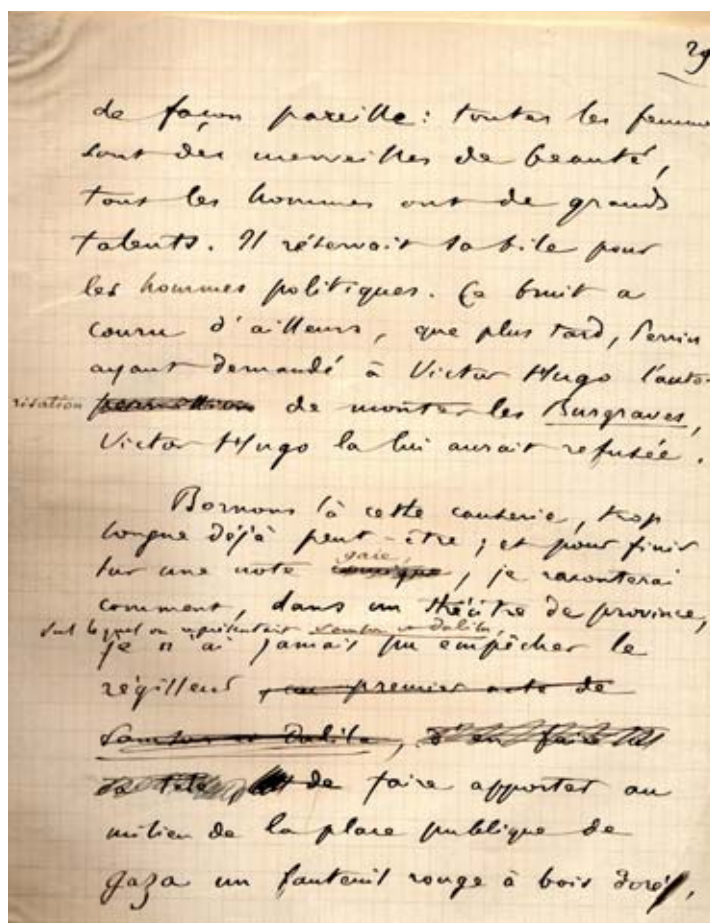 29
de façon pareille : toutes les femmes
sont des merveilles de beauté,
tous les hommes ont de grands
talents. Il réservait sa bile pour
les hommes politiques. Ce bruit a
couru d'ailleurs, que plus tard, Perrin
ayant demandé à Victor Hugo l'auto-
risation permission de monter les Burgraves,
Victor Hugo la lui aurait refusée.
Bornons là cette causerie, trop
longue déjà peut-être ; et pour finir
gaie,
sur une note comique, je raconterai
comment, dans un théâtre de province,
sur lequel on représentait Samson et Dalila,
je n'ai jamais pu empêcher le
régisseur, au premier acte de
Samson et Dalila, d'en faire
sa tête de faire apporter au
milieu de la place publique de
Gaza un fauteuil rouge à bois doré,